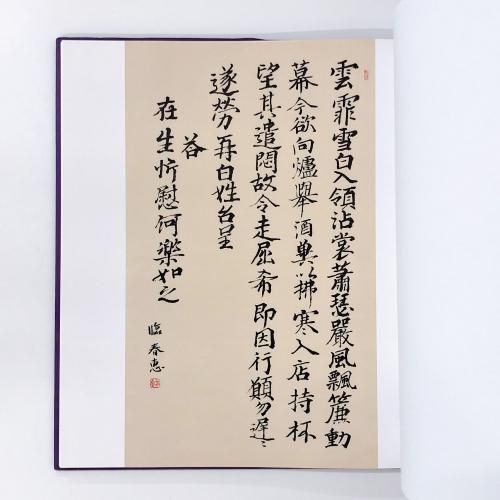 雲霏雪白入領沾裳蕭瑟嚴風飄簾動
幕今欲向爐舉酒冀以拂寒入店持杯
望其遣悶故令走屈希即因行願勿遲遲
遂勞再白姓名呈
答
在生忻慰何樂如之
臨春惠